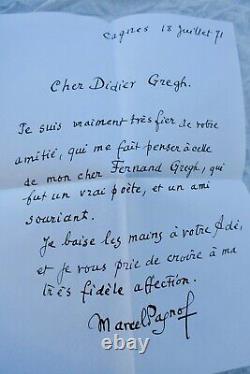 Cagnes 18 Juillet 71
Cher Didier Gregh.
Je suis vraiment très fier de votre
amitié, qui me fait penser à celle
de mon cher Fernand Gregh, qui
fut un vrai poète, et un ami
souriant.
Je baise les mains à votre Adé,
et je vous prie de croire à ma
très fidèle affection.
Marcel Pagnol